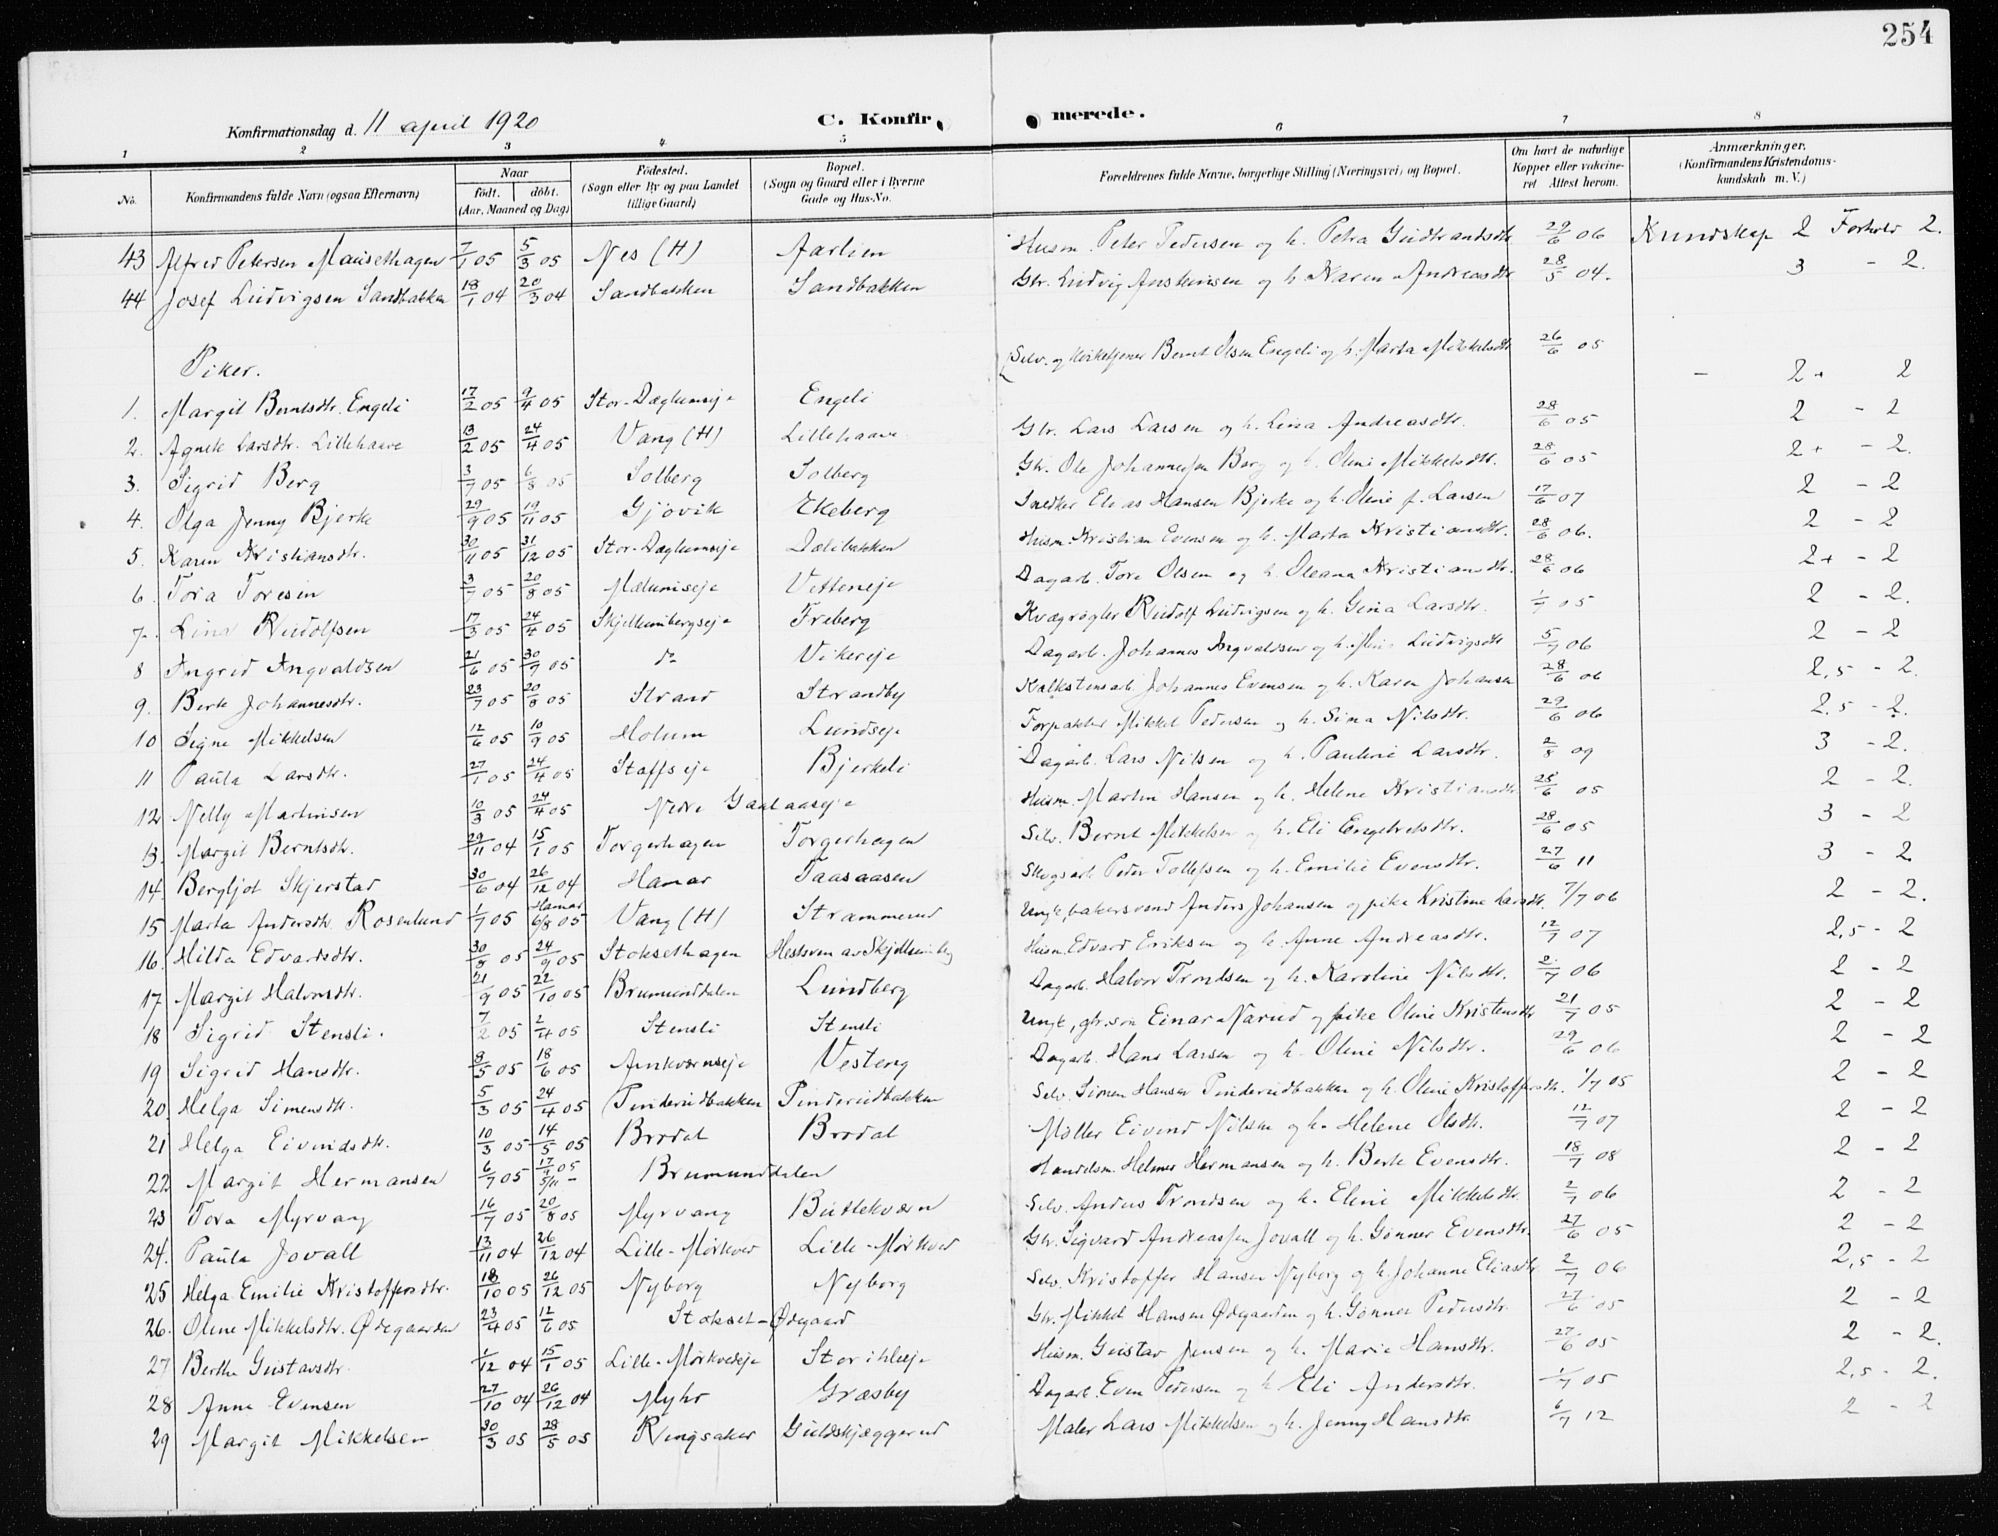 254
Konfirmationsdag d. 11 april 1920 C. Konfirmerede.
1 2 3 4 5 6 7 8
No. Konfirmandens fulde Navn (ogsaa Efternavn) Naar født. døbt. (Aar, Maaned og Dag) Fødested. (Sogn eller By og paa Landet tillige Gaard) Bopæl. (Sogn og Gaard eller i Byerne Gade og Hus-No. Forældrenes fulde Navne, borgerlige Stilling (Næringsvei) og Bopæl. Om havt de naturlige Kopper eller vakcineret Attest herom. Anmærkninger. (Konfirmandens Kristendomskundskab m. V.)
43 Alfred Petersen Mausethagen 7/1 05 5/3 05 Nes (H) Aarlien Husm. Peter Pedersen og h. Petra Gudbrandsdtr 29/6 06 Kundskap 2 Forhold 2.
44 Josef Ludvigsen Sandbakken 18/1 04 20/3 04 Sandbakken Sandbakken Gbr. Ludvig Anskinsen og h. Karen Andreasdtr 28/5 04. 3 - 2.
Piker.
1. Margit Berntsdtr. Engeli 17/2 05 9/4 05 Stor-Dæglumseje Engeli Selv. og Kirketjener Bernt Olsen Engeli og h. Marta Mikkelsdtr 26/6 05 - 2+ 2
2. Agnete Larsdtr. Lillehaave 13/2 05 24/4 05 Vang (H) Lillehaave Gbr. Lars Larsen og h. Lina Andreasdtr. 28/6 05 2 - 2
3. Sigrid Berg 3/7 05 6/8 05 Solberg Solberg Gbr. Ole Johannessen Berg og h. Oline Mikkelsdtr. 28/6 05 2+ - 2.
4. Olga Jenny Bjerke 29/9 05 19/11 05 Gjøvik Ekeberg Snedker Elias Hansen Bjerke og h. Oline f. Larsen 17/6 07 2 - 2
5. Karen Kristiansdtr. 30/11 05 31/12 05 Stor-Dæglumseje Dælibakken Husm. Kristian Evensen og h. Marta Kristiansdtr. 28/6 06. 2 - 2
6. Tora Toresen 3/7 05 20/8 05 Mælumseje Vetteneje Dagarb. Tore Olsen og h. Oleana Kristiansdtr. 28/6 06 2+ - 2
7. Lina Rudolfsen 17/3 05 24/4 05 Skjellumbergseje Freberg Kvægrøgter Rudolf Ludvigsen og h. Gina Larsdtr. 1/7 05 2 - 2.
8 Ingrid Ingvaldsen 21/6 05 30/7 05 do Vikereje Dagarb. Johannes Ingvaldsen og h. Ludvigsdtr 5/7 06 2 - 2
9. Berte Johannesdtr. 23/7 05 20/8 05 Strand Strandby Kalkstensarb. Johannes Evensen og h. Karen Johansen 28/6 06 2,5 - 2.
10 Signe Mikkelsen 12/6 05 10/9 05 Holum Lundseje Forpakter Mikkel Pedersen og h. Sina Nilsdtr. 29/6 06 2.5 - 2.
11 Paula Larsdtr. 27/1 05 24/4 05 Staffseje Bjerkeli Dagarb. Lars Nilsen og h. Pauline Larsdtr. 2/8 09 3 - 2.
12 Nelly Martinsen 10/3 05 24/4 05 Nedre Gaalaaseje Husm. Martin Hansen og h. Helene Kristiansdtr 28/6 05 2 - 2.
13. Margit Berntsdtr. 29/11 04 15/1 05 Torgerhagen Torgerhagen Selv. Bernt Mikkelsen og h. Eli Engebretsdtr. 28/6 05 3 - 2
14. Bergljot Skjerstad 30/6 04 26/12 04 Hamar Taasaasen Skogsarb. Peder Tollefsen og h. Emilie Evensdtr. 27/6 11 3 - 2
15 Marta Andersdtr. Rosenlund 1/7 05 Hamar 6/8 05 Vang (H) Strammerud Ungk, bakersvend Anders Johansen og pike Kristine Larsdtr. 7/7 06 2 - 2.
16. Hilda Edvardsdtr. 30/8 05 24/9 05 Stoksethagen Hestsven av Skjellumbg Husm. Edvard Eriksen og h. Anne Andreasdtr. 12/7 07 2,5 - 2
17. Margit Halvorsdtr. 21/9 05 22/10 05 Brumunddalen Lundberg Dagarb. Halvor Trondsen og h. Karoline Nilsdtr. 2/7 06 2 - 2
18 Sigrid Stensli. 7/2 05 2/4 05 Stensli Stensli Ungk, gbr.søn Einar Narud og pike Oline Kristensdtr 21/7 05 2 - 2
19 Sigrid Hansdtr. 8/5 05 18/6 05 Amkværnseje Vesteng Dagarb. Hans Larsen og h. Oline Nilsdtr. 29/6 06 2 - 2
20. Helga Simensdtr. 5/3 05 24/4 05 Pinderudbakken Pinderudbakken Selv. Simen Hansen Pinderudbakken og h. Oline Kristoffersdtr. 1/7 05 2 - 2
21 Helga Eivindsdtr. 10/3 05 14/5 05 Brodal Brodal Møller Eivind Nilsen og h. Helene Olsdtr. 12/7 07 2 - 2
22 Margit Hermansen 6/7 05 17/9 05 5/11 - Brumunddalen Handelsm. Helmer Hermansen og h. Berte Evensdtr. 18/7 08 2 - 2
23 Tora Myrvang 16/7 05 20/8 05 Myrvang Butlekværn Selv. Anders Trondsen og h. Eline Mikkelsdtr. 2/7 06 2 - 2
24. Paula Jovall 13/11 04 26/12 04 Lille-Mørkved Lille-Mørkved Gbr. Sigvard Andreassen Jovall og h. Gunner Evensdtr. 27/6 05 2 - 2
25 Helga Emilie Kristoffersdtr. 18/10 05 26/12 05 Nyborg Nyborg Selv. Kristoffer Hansen Nyborg og h. Johanne Eliasdtr 2/7 06 2,5 - 2
26. Oline Mikkelsdtr. Ødegaarden 23/4 05 12/6 05 Stokset-Ødegaard Gbr. Mikkel Hansen Ødegaarden og h. Gunner Pedersdtr. 27/6 05 2 - 2
27 Berthe Gustavsdtr. 1/12 04 15/1 05 Lille-Mørkvedeje Stor ihleje Husm. Gustav Jensen og h. Marie Hansdtr. 27/6 05 2 - 2.
28 Anne Evensen 27/10 04 26/12 04 Myhr Græsby Dagarb. Even Pedersen og h. Eli Andersdtr. 1/7 05 2,5 - 2.
29 Margit Mikkelsen 30/3 05 28/5 05 Ringsaker Guldskjæggerud Maler Lars Mikkelsen og h. Jenny Hansdtr. 6/7 12 2 - 2